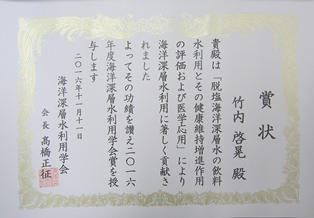 賞状
竹内 啓晃 殿
貴殿は「脱塩海洋深層水の飲料
水利用とその健康維持増進作用
の評価および医学応用」により
海洋深層水利用に著しく貢献さ
れました
よってその功績を讃え二〇一六
年度海洋深層水利用学会賞を授
与します
二〇一六年十一月十一日
海洋深層水利用学会
会長 高橋正征